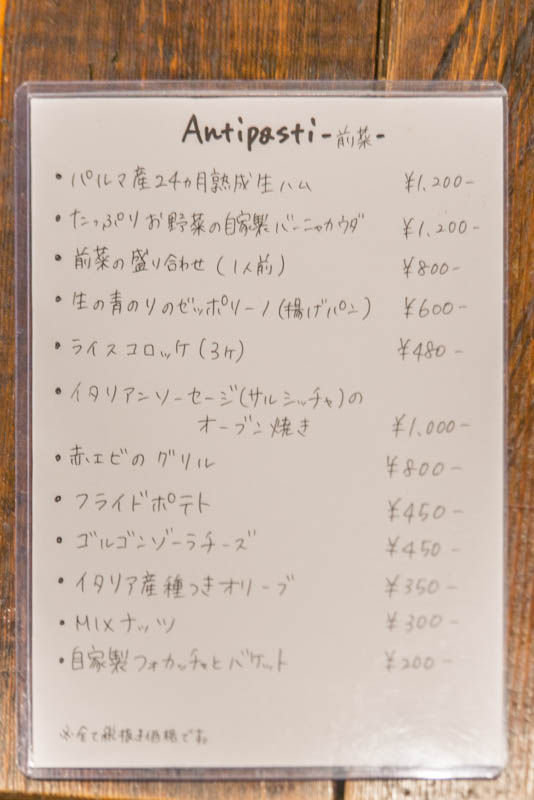 Antipasti -前菜-
・パルマ産24ヵ月熟成生ハム ¥1,200-
・たっぷりお野菜の自家製バーニャカウダ ¥1,200-
・前菜の盛り合わせ(1人前) ¥800-
・生の青のりのゼッポリーノ(揚げパン) ¥600-
・ライスコロッケ(3ヶ) ¥480-
・イタリアンソーセージ(サルシッチャ)の
オーブン焼き ¥1,000-
・赤エビのグリル ¥800-
・フライドポテト ¥450-
・ゴルゴンゾーラチーズ ¥450-
・イタリア産種つきオリーブ ¥350-
・MIXナッツ ¥300-
・自家製フォカッチャとバケット ¥200-
※全て税抜き価格です。